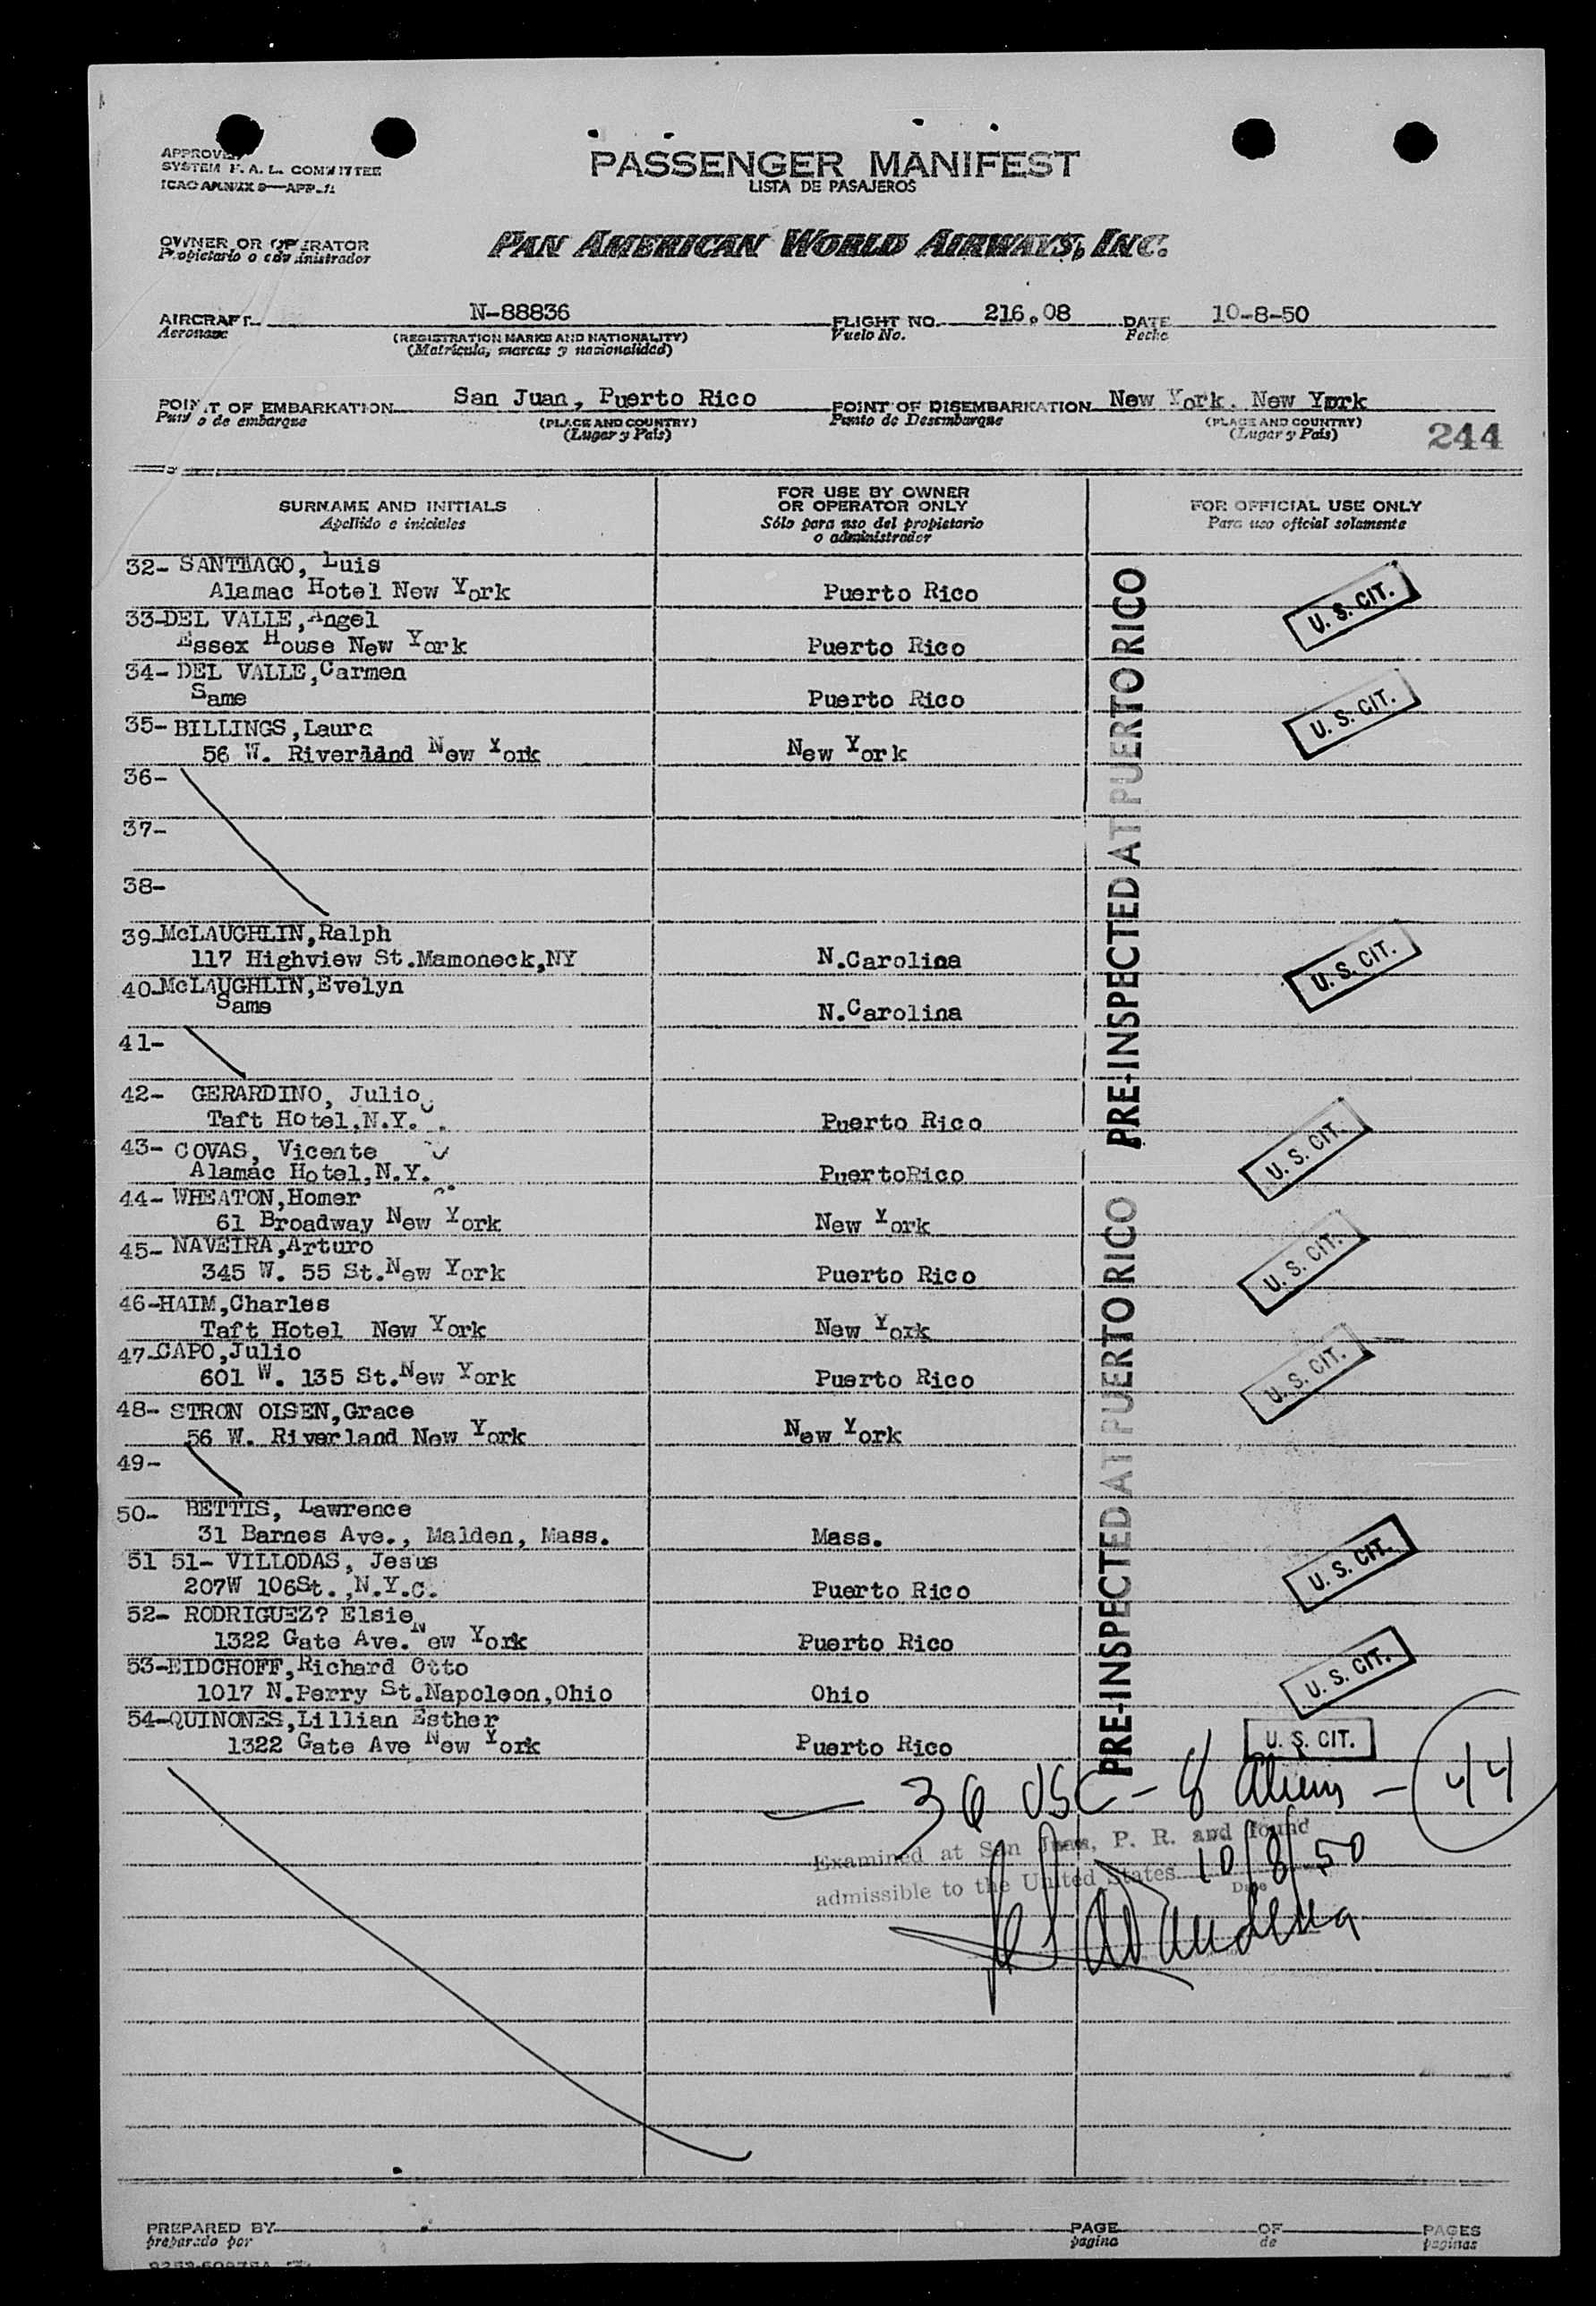 PASSENGER MANIFEST
LISTA DE PASAJEROS
SYSTEM F. A. L. COMMITTEE
OWNER OR OPERATOR
PAN AMERICAN WORLD AIRWAYS, INC.
AIRCRAFT N-88836 FLIGHT NO. 216.08 DATE 10-8-50
Aeronave (REGISTRATION MARKS AND NATIONALITY) Vuelo No. Fecha
(Matrícula, marcas y nacionalidad)
POINT OF EMBARKATION San Juan, Puerto Rico POINT OF DISEMBARKATION New York. New York
Punto de embarque (PLACE AND COUNTRY) Punto de Desembarque (PLACE AND COUNTRY)
(Lugar y País) (Lugar y País) 244
SURNAME AND INITIALS FOR USE BY OWNER OR OPERATOR ONLY FOR OFFICIAL USE ONLY
Apellido e iniciales Sólo para uso del propietario o administrador Para uso oficial solamente
32- SANTIAGO, Luis
Alamac Hotel New York Puerto Rico U. S. CIT.
33-DEL VALLE,Angel
Essex House New York Puerto Rico
34- DEL VALLE,Carmen
Same Puerto Rico U. S. CIT.
35- BILLINGS,Laura
56 W. Riverland New York New York
36-
37-
38-
39-McLAUGHLIN,Ralph
117 Highview St.Mamoneck,NY N.Carolina U. S. CIT.
40-McLAUGHLIN,Evelyn
Same N.Carolina
41-
42- GERARDINO, Julio
Taft Hotel,N.Y. Puerto Rico U. S. CIT.
43- COVAS, Vicente
Alamac Hotel,N.Y. PuertoRico
44- WHEATON,Homer
61 Broadway New York New York
45- NAVEIRA,Arturo
345 W. 55 St.New York Puerto Rico U. S. CIT.
46-HAIM,Charles
Taft Hotel New York New York
47-CAPO,Julio
601 W. 135 St.New York Puerto Rico U. S. CIT.
48- STRON OLSEN,Grace
56 W. Riverland New York New York
49-
50- BETTIS, Lawrence
31 Barnes Ave., Malden, Mass. Mass. U. S. CIT.
51 51- VILLODAS, Jesus
207W 106St.,N.Y.C. Puerto Rico
52- RODRIGUEZ? Elsie
1322 Gate Ave.New York Puerto Rico
53-EIDCHOFF,Richard Otto
1017 N.Perry St.Napoleon,Ohio Ohio U. S. CIT.
54-QUINONES,Lillian Esther
1322 Gate Ave New York Puerto Rico U. S. CIT.
PRE-INSPECTED AT PUERTO RICO
PRE-INSPECTED AT PUERTO RICO
— 36 USC - 8 Aliens - 44
Examined at San Juan, P. R. and found
admissible to the United States 10/8/50
Date
PREPARED BY PAGE OF PAGES
preparado por pagina de paginas